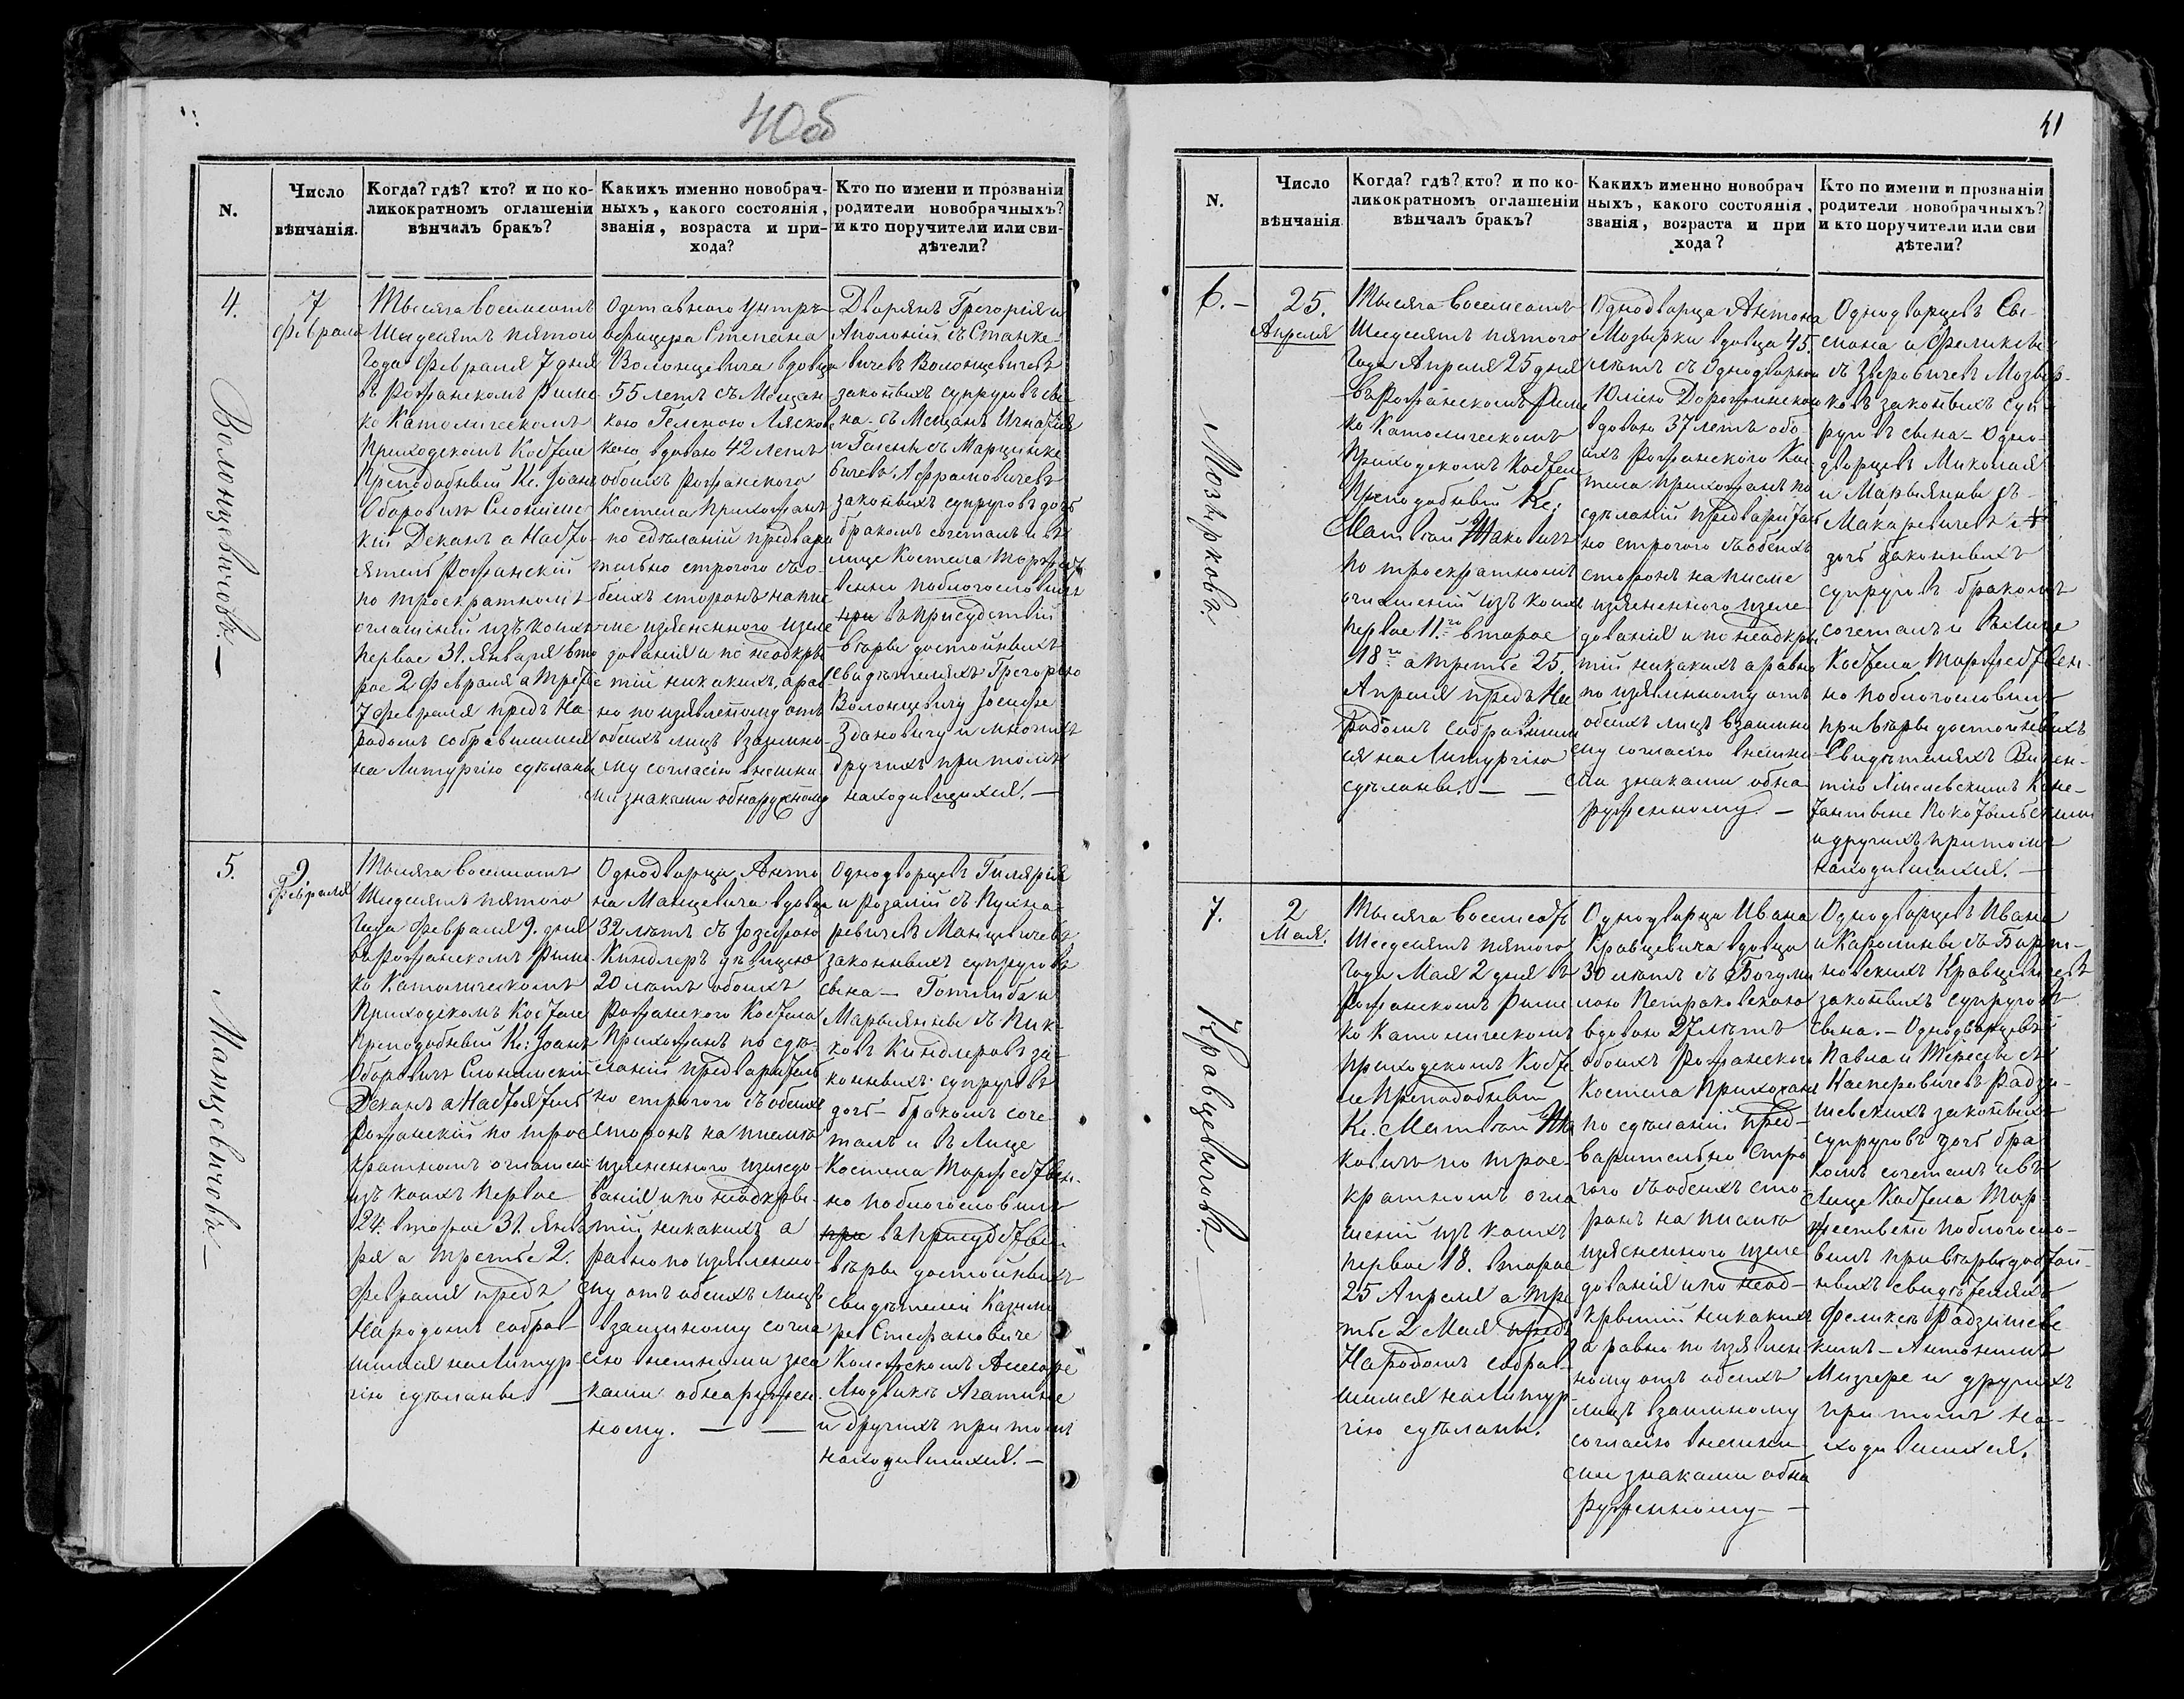 40об
N.
Число
вѣнчанія.
Когда? гдѣ? кто? и по ко-
ликократномъ оглашеніи
вѣнчалъ бракъ?
Какихъ именно новобрач-
ныхъ, какого состоянія,
званія, возраста и при-
хода?
Кто по имени и прозваніи
родители новобрачныхъ?
и кто поручители или сви-
дѣтели?
4.
Волонцевичовъ. —
7
Февраля
Тысяча восемсотъ
Шедесятъ пятого
Года Февраля 7 дня
въ Рожанскомъ Римс
ко Католическомъ
Приходскомъ Костеле
Преподобный Кс. Іоанъ
Оборовичъ Слонимс-
кій Деканъ а Насто-
ятель Рожанскій
по троекратномъ
оглашеній изъ коихъ
первое 31. Января вто
рое 2 Февраля а третье
7 Февраля предъ На-
родомъ собравшимся
на Литургію сдѣланы
Одставного Унтръ-
Волонцевича вдовца
55 летъ съ Мещан
кою Геленою Лясков
кою вдовою 42 летъ
обоихъ Рожанского
Костела прихожанъ
по сдѣланій предвари
тельно строгого съ о-
беихъ сторонъ на пис
ме изясненного изсле
дованія и по неодкры
тій никакихъ, а рав
но по изявленому отъ
обеихъ лицъ взаимно
му согласію внешни
ми знаками обнаруженому
Дворянъ Грегорія и
Аполоній съ Станке-
вичевъ Волонцевичевъ
законыхъ супруговъ сы
на - съ Мещанъ Игнатія
и Гелены съ Марцинке
вичевъ
законыхъ супруговъ дочь
бракомъ сочеталъ и въ
лице Костела торжест
венно поблогословилъ
при въ присудствій
вѣры достойныхъ
свидѣтеляхъ Грегорію
Волонцевичу Іосифе
Здановичу и многихъ
другихъ при томъ
находившихся. —
5.
Манцевичовъ. —
9
Февраля
Тысяча восемсотъ
Шедесятъ пятого
Года Февраля 9. дня
въ Рожанскомъ Римс
ко Католическомъ
Приходскомъ Костеле
Преподобный Кс: Іоанъ
Оборовичъ Слонимскій
Деканъ а Настоятель
Рожанскій по трое
кратномъ оглашени
изъ коихъ первое
24. второе 31. Янва
ря а третье 2.
Февраля предъ
Народомъ собрав-
шимся на Литур
гію сдѣланы. —
Однодворца Анто
на Манцевича вдовца
32 лѣтъ съ Іозефою
Киндлеръ дѣвицею
20 лѣтъ обоихъ
Рожанского Костела
Прихожанъ по сдѣ-
ланій предваритель
но строгого съ обеихъ
сторонъ на письмѣ
изясненного изследо-
ванія и по неодкры-
тій никакихъ а
равно по изявлено-
му отъ обеихъ лицъ
взаимному согла
сію внешними зна
ками обнаружен
ному. — —
Однодворцевъ Гилярія
и Розалій съ Пушка-
ревичевъ Манцевичевъ
законныхъ супруговъ
сына — Готлиба и
Марыянны съ Пик-
ковъ Киндлеровъ за-
конныхъ супруговъ
дочь - бракомъ соче-
талъ и въ Лице
Костела Торжествен-
но поблогословилъ
при въ присудствій
вѣры достойныхъ
свидѣтелей Казими
ре Стефановиче
Людвикѣ
и другихъ при томъ
находившихся. —
41
N.
Число
вѣнчанія
Когда? гдѣ? кто? и по ко-
ликократномъ оглашеніи
вѣнчалъ бракъ?
Какихъ именно новобрач
ныхъ, какого состоянія,
званія, возраста и при
хода?
Кто по имени и прозваніи
родители новобрачныхъ?
и кто поручители или сви
дѣтели?
6. —
Мозырковъ.
25.
Апреля
Тысяча восемсотъ
Шедесятъ пятого
Года Апреля 25 дня
въ Рожанскомъ Римс
ко Католическомъ
Приходскомъ Костеле
Преподобный Кс:
Матвѣй Жаковичъ
по троекратномъ
оглашеній изъ коихъ
первое 11.го второе
18го а третье 25
Апреля предъ На
родомъ собравшим
ся на Литургію
сдѣланы. — —
Однодворца Антона
Мозырки вдовца 45.
лѣтъ съ Однодворкою
Юліею
вдовою 37 летъ обо-
ихъ Рожанского Кос-
тела прихожанъ по
сдѣланій предваритель
но строгого съ обеихъ
сторонъ на писме
изясненного изсле
дованія и по неодкры
тій никакихъ а равно
по изявленному отъ
обеихъ лицъ взаимно
му согласію внешни
ми знаками обна
руженному. —
Однодворцевъ Си-
мона и Феликсы
съ Зверовичевъ Мозыр-
ковъ законыхъ суп-
руговъ сына — Одно-
дворцевъ Миколая
и Марыянны съ
Макаревичевъ
дочь законныхъ
супруговъ бракомъ
сочеталъ и въ лице
Костела Торжествен-
но поблогословилъ
при вѣры достойныхъ
Свидѣтеляхъ Викен-
тію
и другихъ при томъ
находившихся. —
7.
Кравцевичовъ. —
2
Мая.
Тысяча восемсотъ
Шедесятъ пятого
Года Мая 2 дня въ
Рожанскомъ Римс
ко Католическомъ
приходскомъ Косте
ле Преподобный
Кс. Матвѣй Жа
ковичъ по трое-
кратномъ огла
шеній изъ коихъ
первое 18. второе
25 Апреля а тре
тье 2 Мая предъ
Народомъ собрав-
шимся на Литур
гію сдѣланы.
Однодворца Ивана
Кравцевича вдовца
30 лѣтъ съ Богуми
лою Петраковскою
вдовою 27 лѣтъ
обоихъ Рожанского
Костела Прихожанъ
по сдѣланій пред-
варительно стро
гого съ обеихъ сто
ронъ на письмѣ
изясненного изсле
дованія и по неод-
крытій никакихъ
а равно по изявлен
ному отъ обеихъ
лицъ взаимному
согласію внешни
ми знаками обна
руженному — —
Однодворцевъ Ивана
и Каролины съ Барт-
новскихъ Кравцевичевъ
законыхъ супруговъ
сына. — Однодворцевъ
Павла и Тересы съ
Касперовичевъ Радзи-
шевскихъ законыхъ
супруговъ дочь бра
комъ сочеталъ и въ
Лице Костела Тор-
жествено поблогосло-
вилъ при вѣры достой-
ныхъ свидѣтеляхъ
Феликсѣ Радзишевс
кимъ — Антонимъ
Мизгере и другихъ
при томъ на-
ходившихся.